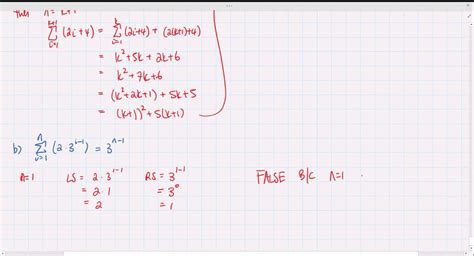 then n = k+1
k+1 Σ i=1 (2i+4) = k Σ i=1 (2i+4) + (2(k+1)+4)
= k² + 5k + 2k+6
= k² + 7k + 6
= (k² + 2k+1) + 5k + 5
= (k+1)² + 5(k+1)
b) n Σ i=1 (2·3^(i-1)) = 3^(n-1)
n=1 LS = 2·3^(1-1) RS = 3^(1-1) FALSE B/C n=1
= 2·1 = 3^0
= 2 = 1